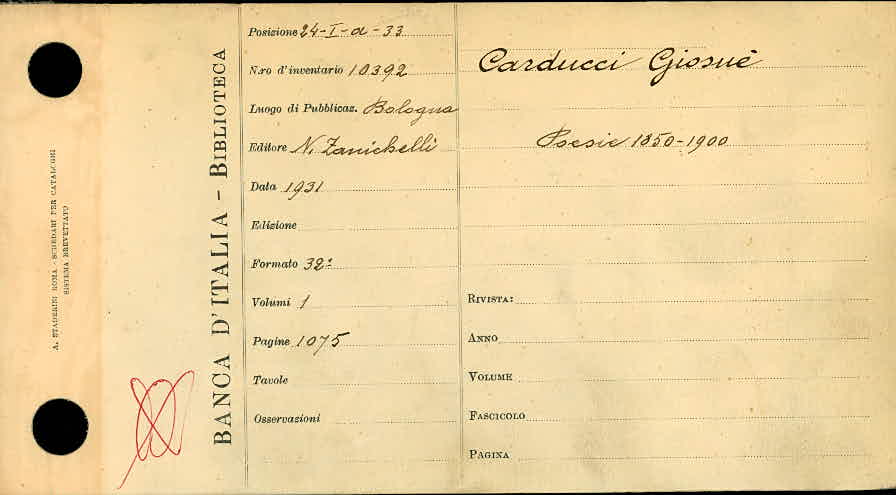 A. STADERINI ROMA - SCHEDARI PER CATALOGHI
SISTEMA BREVETTATO
BANCA D'ITALIA - BIBLIOTECA
Posizione 24-I-a-33
N.ro d'inventario 10392
Luogo di Pubblicaz. Bologna
Editore N. Zanichelli
Data 1931
Edizione
Formato 32º
Volumi 1
Pagine 1075
Tavole
Osservazioni
Carducci Giosuè
Poesie 1850-1900
RIVISTA:
ANNO
VOLUME
FASCICOLO
PAGINA